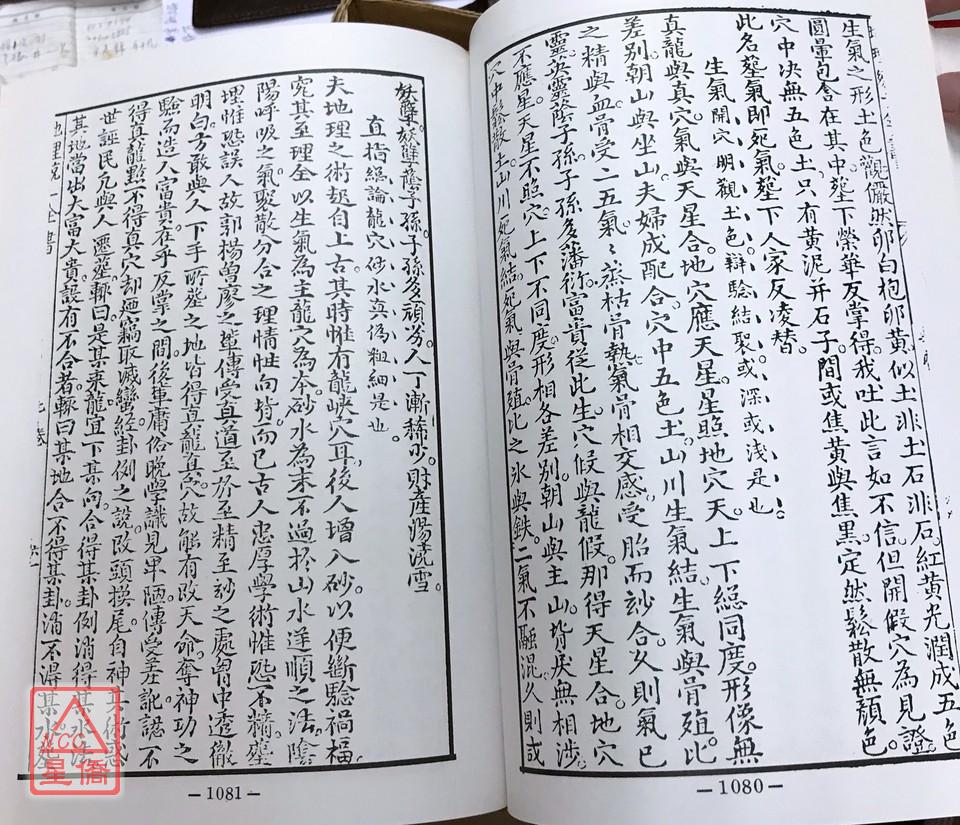 生氣之形土色觀儼然卵白抱卵黃似土非土石非石紅黃光潤成五色
圓暈包含在其中塟下榮華反掌得我吐此言如不信但開假穴為見證
穴中决無五色土只有黃泥并石子間或焦黃與焦黑定然鬆散無顏色
此名塟氣即死氣塟下人家反凌替
生氣開穴明觀土色辯驗結聚或深或淺是也
真龍與真穴氣與天星合地穴應天星星照地穴天上下總同度形像無
差別朝山與坐山夫婦成配合穴中五色土山川生氣結生氣與骨殖比
之精與血骨受二五氣氣蒸枯骨熱氣骨相交感受胎而玅合久則氣已
靈英靈蔭子孫子孫多藩衍富貴從此生穴假與龍假那得天星合地穴
不應星天星不照穴上下不同度形相各差別朝山與主山背戾無相涉
穴中鬆散土山川死氣結死氣與骨殖比之氷與鉄二氣不融混久則成
—1080—
妖孽妖孽蔭子孫子孫多頑劣人丁漸稀少財產湯澆雪
直指總論龍穴砂水真偽粗細是也
夫地理之術起自上古其時惟有龍峽穴耳後人增入砂以便斷驗禍福
究其至理全以生氣為主龍穴為本砂水為末不過於山水逆順之法陰
陽呼吸之氣聚散分合之理情性向背而已古人忠厚學術惟恐不精塟
埋惟恐誤人故郭楊曽廖之輩傳受真道至於至精至玅之處胷中透徹
明白方敢與人下手所塟之地皆得真龍真穴故能有改天命奪神功之
驗而造人富貴在乎反掌之間後輩庸俗晚學識見卑陋傳受差訛認不
得真龍點不得真穴却廼竊取滅蠻經卦例之說改頭換尾自神其術惑
世誣民凢與人遷塟輙曰是某來龍宜下某向合得某卦例消得某水法
其地當出大富大貴設有不合者輙曰某地合不得某卦消不得某水
—1081—
NCC
星僑